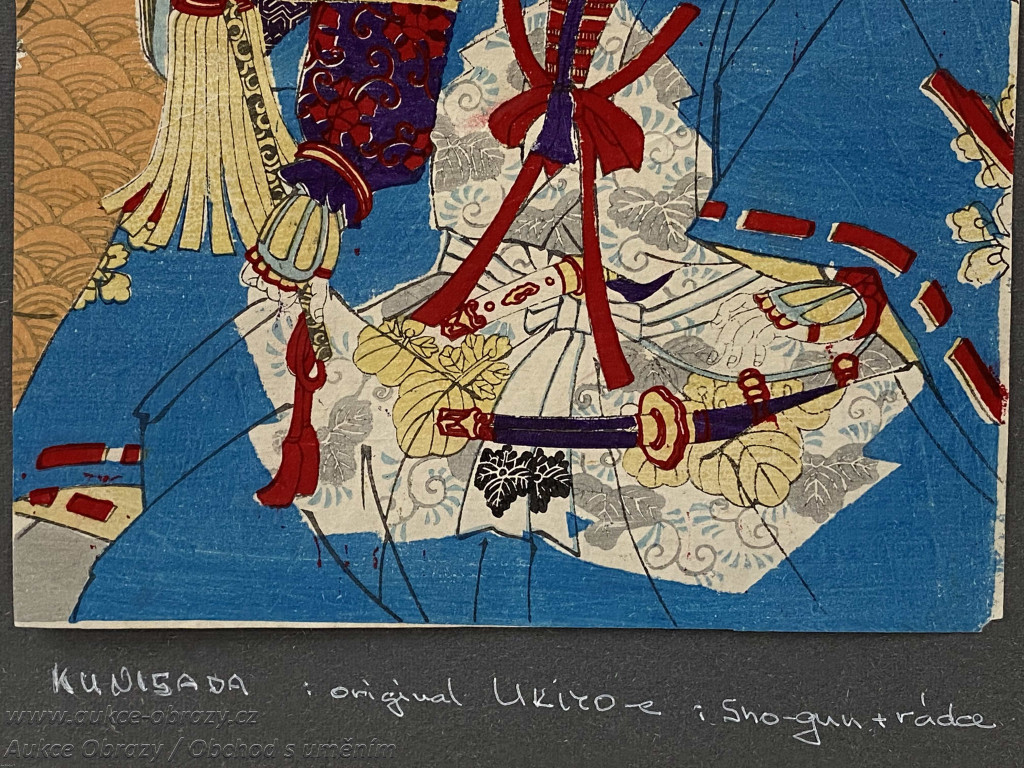 KUNISADA : original UKIYO-e : Sho-gun + rádce
www.aukce-obrazy.cz
Aukce Obrazy / Obchod s uměním